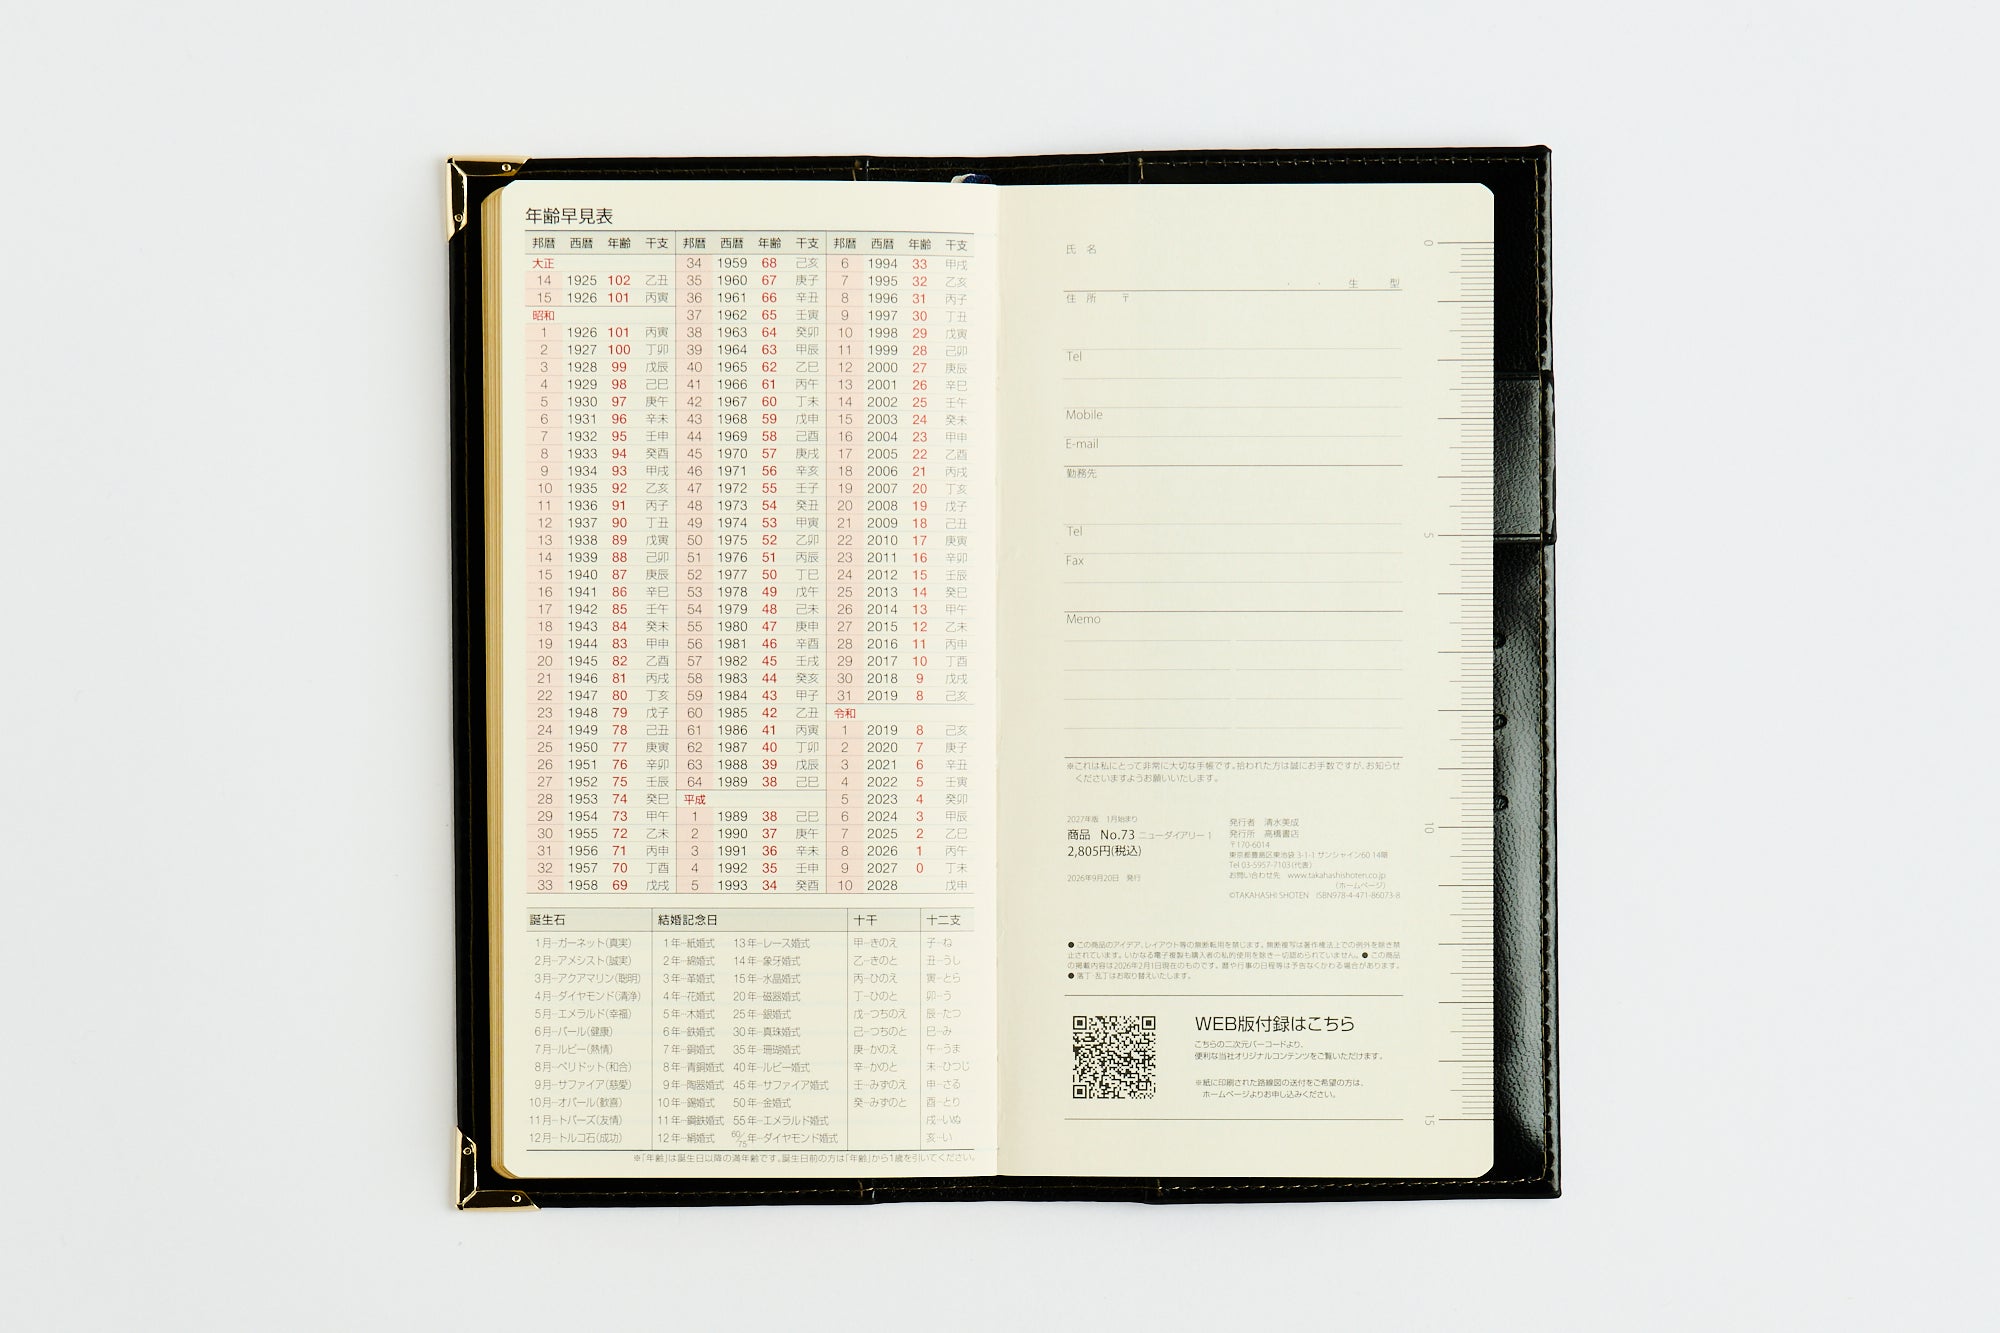 年齢早見表
邦暦 西暦 年齢 干支 邦暦 西暦 年齢 干支 邦暦 西暦 年齢 干支
大正 34 1959 68 己亥 6 1994 33 甲戌
14 1925 102 乙丑 35 1960 67 庚子 7 1995 32 乙亥
15 1926 101 丙寅 36 1961 66 辛丑 8 1996 31 丙子
昭和 37 1962 65 壬寅 9 1997 30 丁丑
1 1926 101 丙寅 38 1963 64 癸卯 10 1998 29 戊寅
2 1927 100 丁卯 39 1964 63 甲辰 11 1999 28 己卯
3 1928 99 戊辰 40 1965 62 乙巳 12 2000 27 庚辰
4 1929 98 己巳 41 1966 61 丙午 13 2001 26 辛巳
5 1930 97 庚午 42 1967 60 丁未 14 2002 25 壬午
6 1931 96 辛未 43 1968 59 戊申 15 2003 24 癸未
7 1932 95 壬申 44 1969 58 己酉 16 2004 23 甲申
8 1933 94 癸酉 45 1970 57 庚戌 17 2005 22 乙酉
9 1934 93 甲戌 46 1971 56 辛亥 18 2006 21 丙戌
10 1935 92 乙亥 47 1972 55 壬子 19 2007 20 丁亥
11 1936 91 丙子 48 1973 54 癸丑 20 2008 19 戊子
12 1937 90 丁丑 49 1974 53 甲寅 21 2009 18 己丑
13 1938 89 戊寅 50 1975 52 乙卯 22 2010 17 庚寅
14 1939 88 己卯 51 1976 51 丙辰 23 2011 16 辛卯
15 1940 87 庚辰 52 1977 50 丁巳 24 2012 15 壬辰
16 1941 86 辛巳 53 1978 49 戊午 25 2013 14 癸巳
17 1942 85 壬午 54 1979 48 己未 26 2014 13 甲午
18 1943 84 癸未 55 1980 47 庚申 27 2015 12 乙未
19 1944 83 甲申 56 1981 46 辛酉 28 2016 11 丙申
20 1945 82 乙酉 57 1982 45 壬戌 29 2017 10 丁酉
21 1946 81 丙戌 58 1983 44 癸亥 30 2018 9 戊戌
22 1947 80 丁亥 59 1984 43 甲子 31 2019 8 己亥
23 1948 79 戊子 60 1985 42 乙丑 令和
24 1949 78 己丑 61 1986 41 丙寅 1 2019 8 己亥
25 1950 77 庚寅 62 1987 40 丁卯 2 2020 7 庚子
26 1951 76 辛卯 63 1988 39 戊辰 3 2021 6 辛丑
27 1952 75 壬辰 64 1989 38 己巳 4 2022 5 壬寅
28 1953 74 癸巳 平成 5 2023 4 癸卯
29 1954 73 甲午 1 1989 38 己巳 6 2024 3 甲辰
30 1955 72 乙未 2 1990 37 庚午 7 2025 2 乙巳
31 1956 71 丙申 3 1991 36 辛未 8 2026 1 丙午
32 1957 70 丁酉 4 1992 35 壬申 9 2027 0 丁未
33 1958 69 戊戌 5 1993 34 癸酉 10 2028 戊申
誕生石 結婚記念日 十干 十二支
1月…ガーネット(真実) 1年…紙婚式 13年…レース婚式 甲…きのえ 子…ね
2月…アメシスト(誠実) 2年…綿婚式 14年…象牙婚式 乙…きのと 丑…うし
3月…アクアマリン(聡明) 3年…革婚式 15年…水晶婚式 丙…ひのえ 寅…とら
4月…ダイヤモンド(清浄) 4年…花婚式 20年…磁器婚式 丁…ひのと 卯…う
5月…エメラルド(幸福) 5年…木婚式 25年…銀婚式 戊…つちのえ 辰…たつ
6月…パール(健康) 6年…鉄婚式 30年…真珠婚式 己…つちのと 巳…み
7月…ルビー(熱情) 7年…銅婚式 35年…珊瑚婚式 庚…かのえ 午…うま
8月…ペリドット(和合) 8年…青銅婚式 40年…ルビー婚式 辛…かのと 未…ひつじ
9月…サファイア(慈愛) 9年…陶器婚式 45年…サファイア婚式 壬…みずのえ 申…さる
10月…オパール(歓喜) 10年…錫婚式 50年…金婚式 癸…みずのと 酉…とり
11月…トパーズ(友情) 11年…鋼鉄婚式 55年…エメラルド婚式 戌…いぬ
12月…トルコ石(成功) 12年…絹婚式 60/75年…ダイヤモンド婚式 亥…い
※「年齢」は誕生日以降の満年齢です。誕生日前の方は「年齢」から1歳を引いてください。
氏 名
・ ・ 生 型
住 所 〒
Tel
Mobile
E-mail
勤務先
Tel
Fax
Memo
※これは私にとって非常に大切な手帳です。拾われた方は誠にお手数ですが、お知らせ
くださいますようお願いいたします。
2027年版 1月始まり
商品 No.73 ニューダイアリー 1
2,805円(税込)
2026年9月20日 発行
発行者 清水美成
発行所 高橋書店
〒170-6014
東京都豊島区東池袋 3-1-1 サンシャイン60 14階
Tel 03-5957-7103(代表)
お問い合わせ先 www.takahashishoten.co.jp
(ホームページ)
©TAKAHASHI SHOTEN ISBN978-4-471-86073-8
● この商品のアイデア、レイアウト等の無断転用を禁じます。無断複写は著作権法上での例外を除き禁
止されています。いかなる電子複製も購入者の私的使用を除き一切認められていません。● この商品
の掲載内容は2026年2月1日現在のものです。暦や行事の日程等は予告なくかわる場合があります。
● 落丁・乱丁はお取り替えいたします。
WEB版付録はこちら
こちらの二次元バーコードより、
便利な当社オリジナルコンテンツをご覧いただけます。
※紙に印刷された路線図の送付をご希望の方は、
ホームページよりお申し込みください。
0
5
10
15